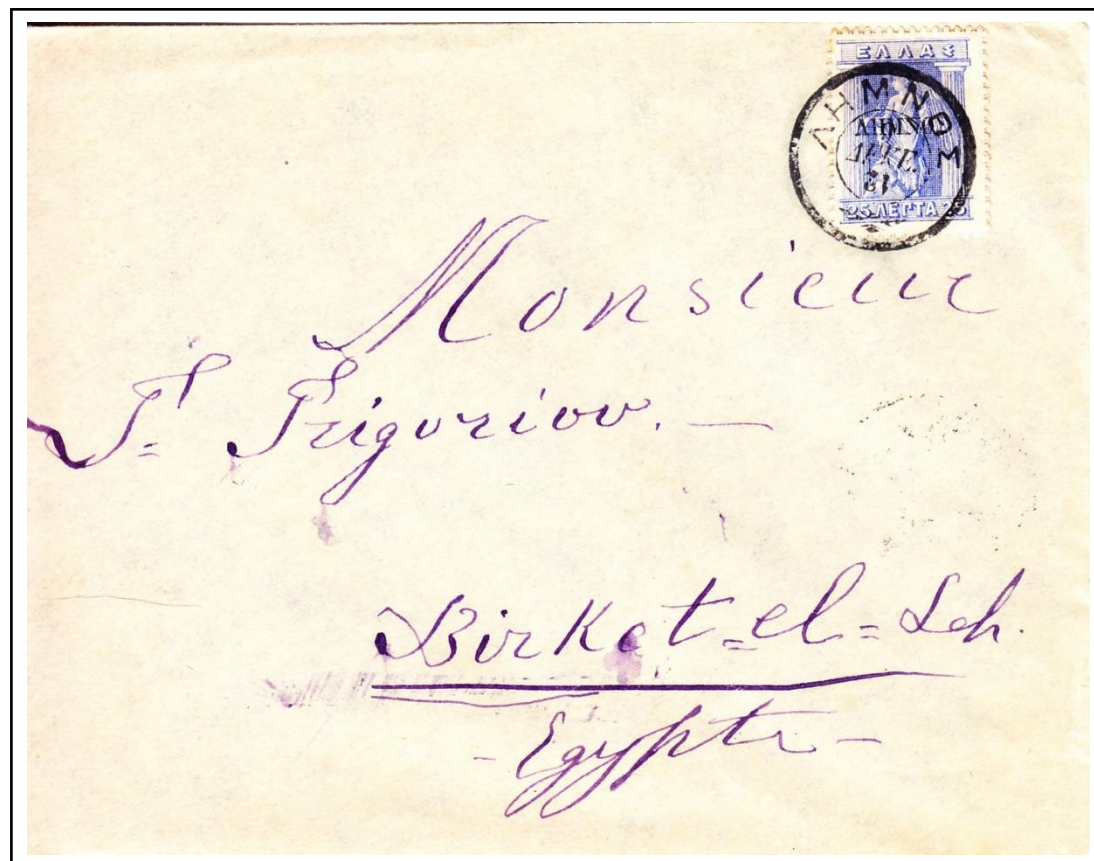 ΕΛΛΑΣ
ΛΗΜΝΟΣ
ΛΗΜΝΟ
ΔΕΚΕ.
31
25 ΛΕΠΤΑ 25
Monsieur
Grigoriou. —
Birket=el=Sch.
- Egypte -